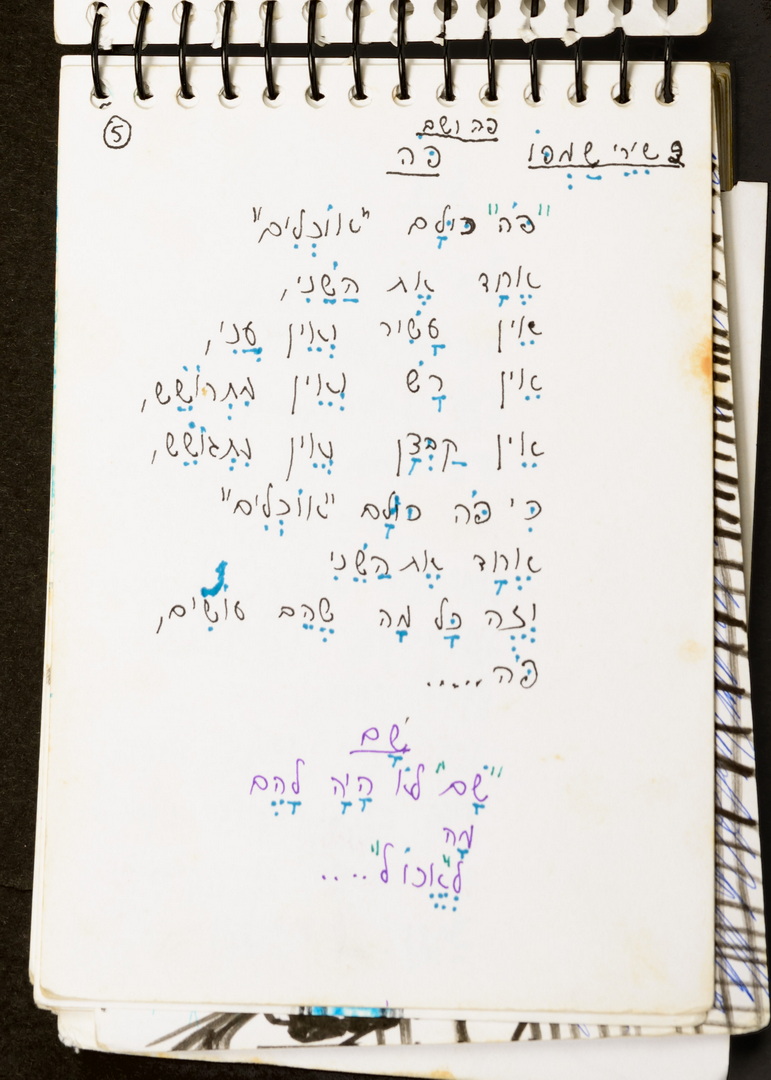 5
פה ושם
2 שירי שמפו
פֹּה
"פֹּה" כולָם "אוֹכְלִים"
אֶוחָד אֶת הַשֵּׁנִי,
אֵין עָשִׁיר וְאֵין עָנִי,
אֵין רָשׁ וְאֵין מִתְרוֹשֵׁשׁ,
אֵין קַבְּצָן וְאֵין מִתְגּוֹשֵׁשׁ,
כִּי פֹּה כולָם "אוֹכְלִים"
אֶוחָד אֶת הַשֵּׁנִי
וְזֶה כָּל מָה שֶׁהֵם עוֹשִׂים,
פֹּה .....
שָׁם
"שָׁם" לֹא הָיָה לָהֶם
מָה
"לֶאֱכוֹל"....